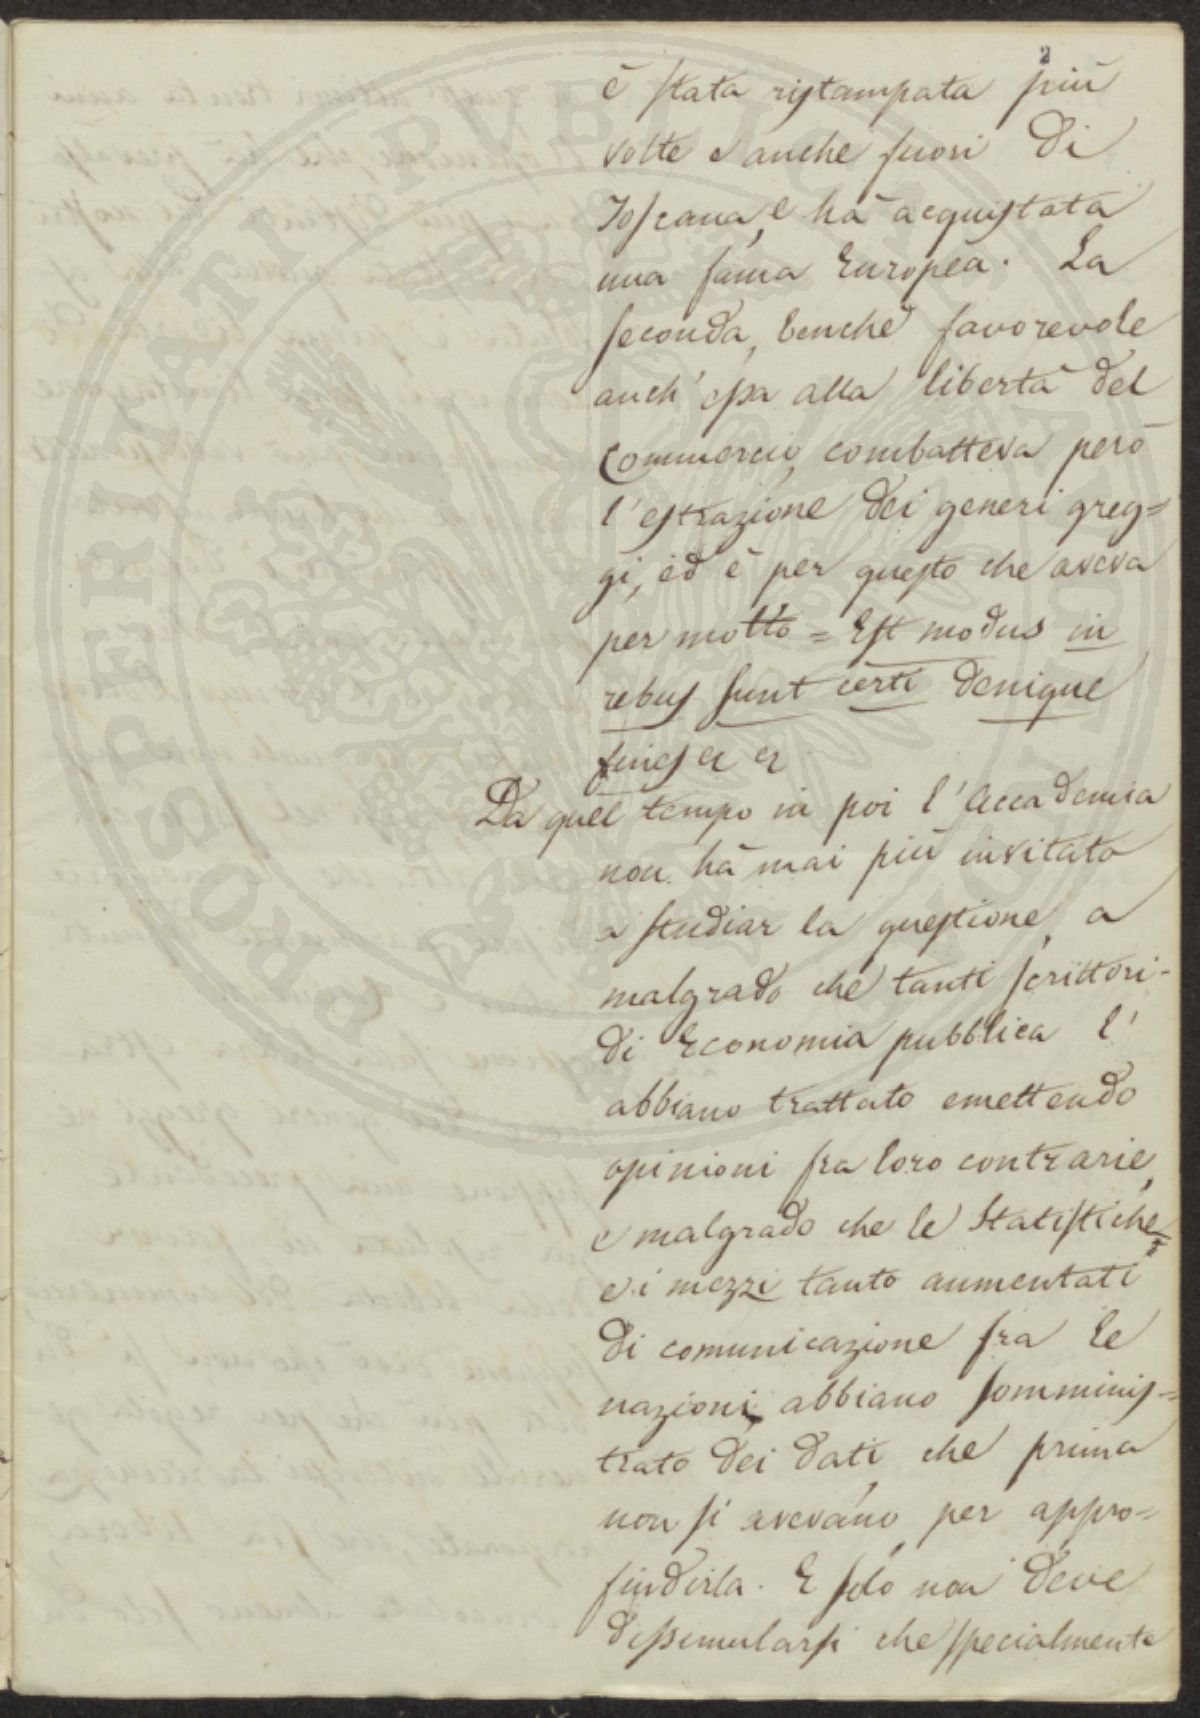 2
è stata ristampata più
volte e anche fuori di
Toscana, e hà acquistata
una fama Europea. La
seconda, benchè favorevole
anch'essa alla libertà del
Commercio, combatteva però
l'estrazione dei generi greg=
gi, ed è per questo che aveva
per motto = Est modus in
rebus sunt certi denique
fines
Da quel tempo in poi l'Accademia
non hà mai più invitato
a studiar la questione, a
malgrado che tanti scrittori
di Economia pubblica l'
abbiano trattato emettendo
opinioni fra loro contrarie,
e malgrado che le Statistiche
e i mezzi tanto aumentati
di comunicazione fra le
nazioni, abbiano somminis=
trato dei dati, che prima
non si avevano, per appro=
findirla. E solo non deve
dissimularsi che specialmente
PROSPERITATI PVBLICAE AVGENDAE